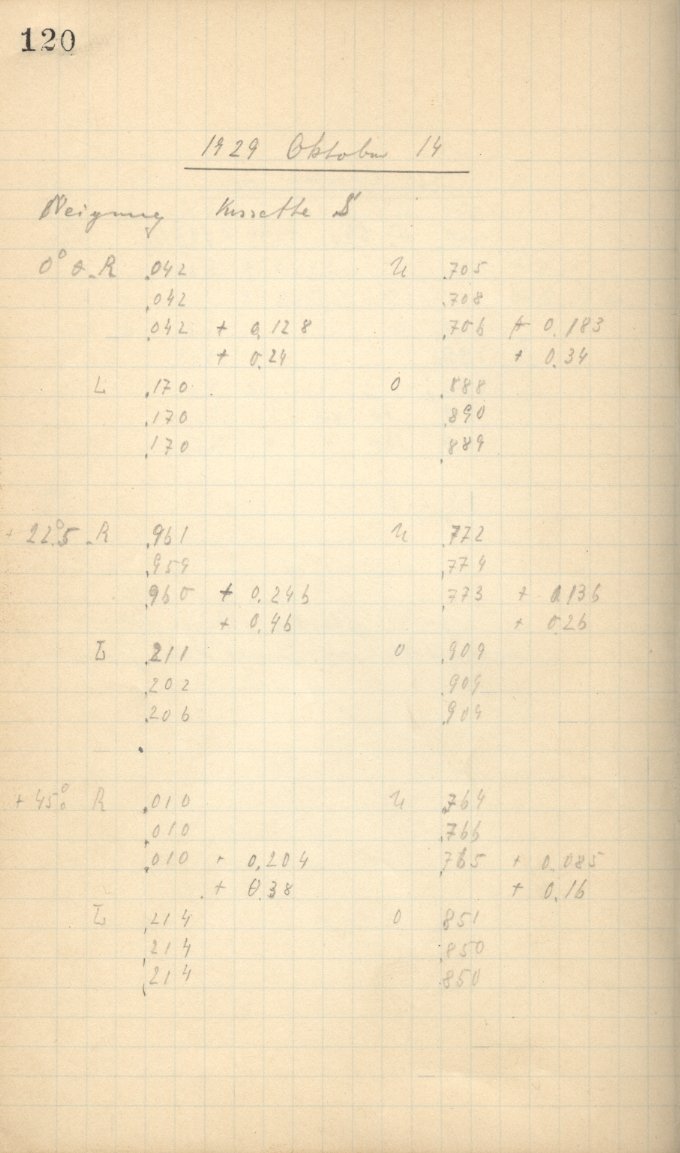 120
1929 Oktober 14
Neigung Kassette S
0° R .042 U .705
.042 .708
.042 + 0.128 .706 + 0.183
+ 0.24 + 0.34
L .170 O .888
.170 .890
.170 .889
+ 22°.5 R .961 U .772
.959 .774
.960 + 0.246 .773 + 0.136
+ 0.46 + 0.26
L .211 O .909
.202 .909
.206 .909
+ 45° R .010 U .764
.010 .766
.010 + 0.204 .765 + 0.085
+ 0.38 + 0.16
L .214 O .851
.214 .850
.214 .850